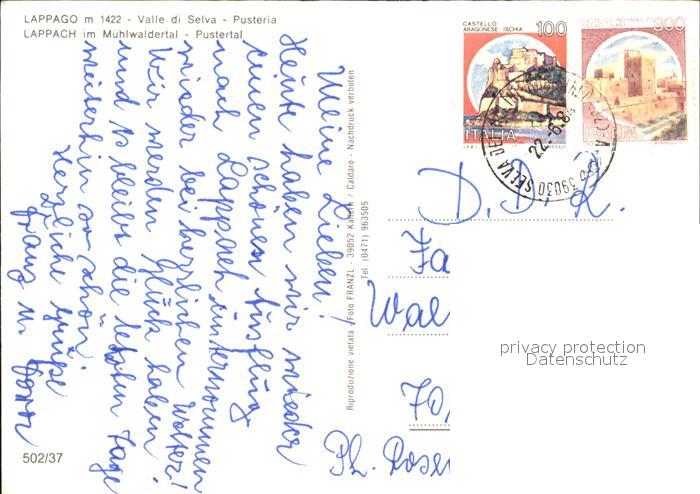 LAPPAGO m 1422 - Valle di Selva - Pusteria
LAPPACH im Mühlwaldertal - Pustertal
Meine Lieben!
Heute haben wir wieder
einen schönen Ausflug
nach Lappach unternommen
wieder bei herrlichen Wetter!
Wir werden Glück haben
und es bleibt die letzten Tage
weiterhin so schön.
Herzliche Grüße
Franz u.
502/37
Riproduzione vietata / Foto FRANZL - 39052 Kaltern / Caldaro - Nachdruck verboten
Tel. (0471) 963505
CASTELLO
ARAGONESE - ISCHIA
100
ITALIA
300
ITALIA
39030 SELVA DEI
22.6.8
D. D. R.
Fa
Wal
70
Ph. Rosen
privacy protection
Datenschutz